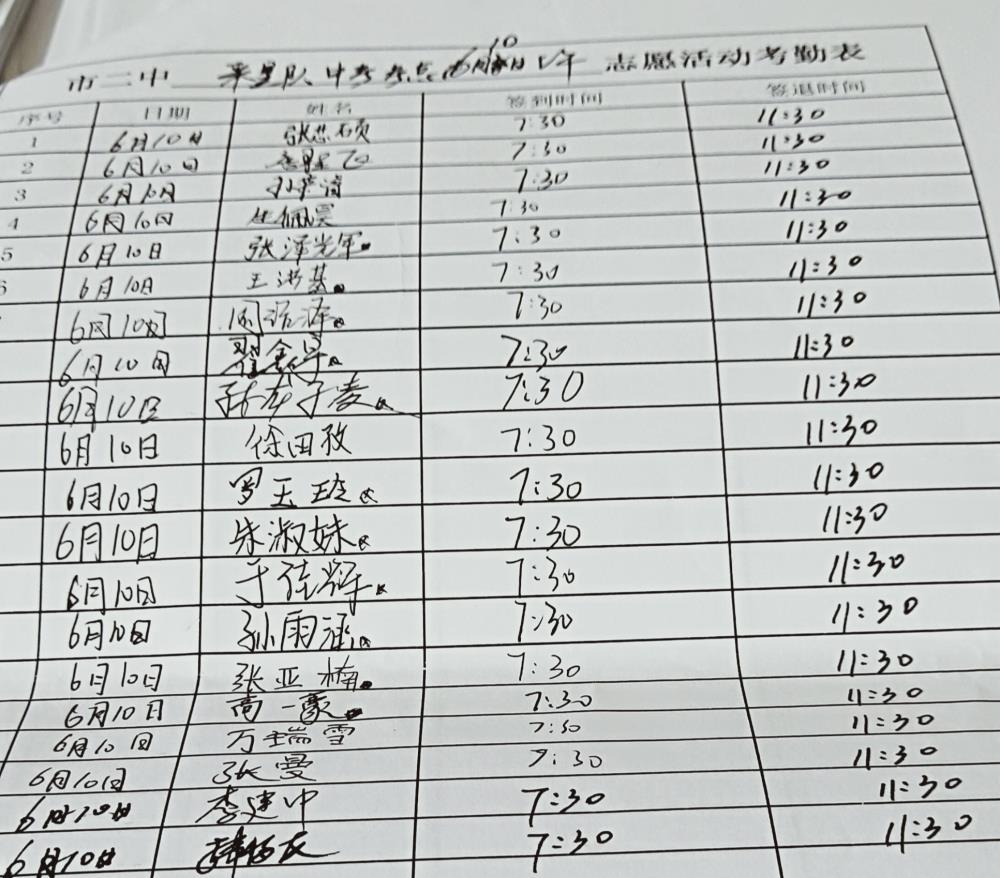 市二中 中考考点 6月10日上午 志愿活动考勤表
序号 日期 姓名 签到时间 签退时间
1 6月10日 7:30 11:30
2 6月10日 7:30 11:30
3 6月10日 7:30 11:30
4 6月10日 7:30 11:30
5 6月10日 张泽光军 7:30 11:30
6月10日 王洪基 7:30 11:30
6月10日 7:30 11:30
6月10日 7:30 11:30
6月10日 7:30 11:30
6月10日 徐田孜 7:30 11:30
6月10日 罗玉 7:30 11:30
6月10日 朱淑姝 7:30 11:30
6月10日 于佳辉 7:30 11:30
6月10日 孙雨涵 7:30 11:30
6月10日 张亚楠 7:30 11:30
6月10日 高一豪 7:30 11:30
6月10日 万瑞雪 7:30 11:30
6月10日 张曼 7:30 11:30
6月10日 李建中 7:30 11:30
6月10日 7:30 11:30